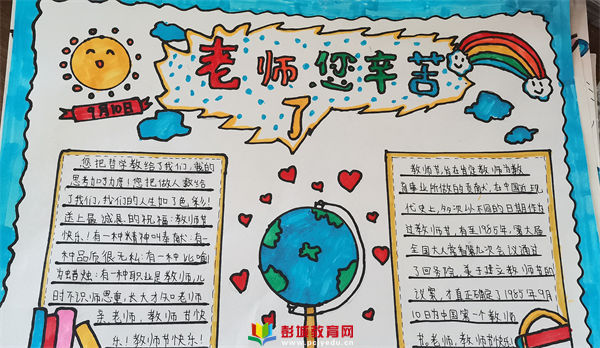 老师您辛苦
了
9月10日
您把哲学教给了我们,我的
思考如
您把做人教给
了我们,我们的人生如了色彩!
送上最诚恳的祝福:教师节
快乐!有一种精神叫奉献:有一
种品质很无私:有一种比喻
为蜡烛:有一种职业是教师,儿
时不识师恩重,长大才知老师
亲,老师,教师节快
乐!教师节快乐!
教师节,旨在肯定教师为教
育事业所做的贡献,在中国近现
代史上,多次以不同的日期作为
过教师节,直至1985年,第六届
全国人大常委第九次会议通过
了国务院关于建立教师节的
议案,才真正确定了1985年9月
10日为中国第一个教师
节,老师,教师节快乐!
彭城教育网
www.pcjyedu.cn